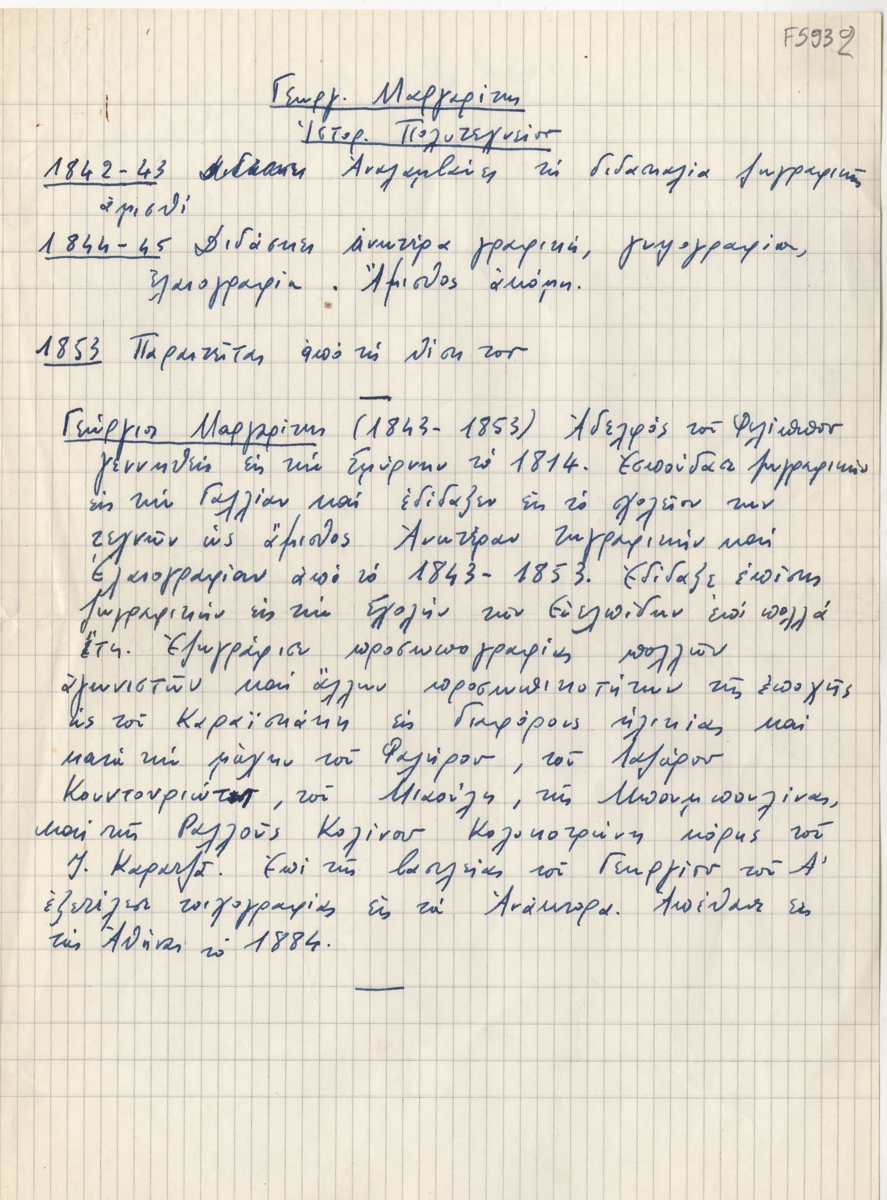 F5932
Γεωργ. Μαργαρίτης
Ἱστορ. Πολυτεχνείου
1842-43 Ἀναλαμβάνει τή διδασκαλία ζωγραφικῆς
ἀμισθί
1844-45 Διδάσκει ἀνωτέρα γραφική, γυψογραφία,
ἐλαιογραφία. Ἄμισθος ἀκόμη.
1853 Παραιτεῖται ἀπό τή θέση του
Γεώργιος Μαργαρίτης (1843-1853) Ἀδελφός τοῦ Φιλίππου
γεννηθείς εἰς τήν Σμύρνην τό 1814. Ἐσπούδασε ζωγραφικήν
εἰς τήν Γαλλίαν καί ἐδίδαξεν εἰς τό σχολεῖον των
τεχνῶν ὡς ἄμισθος Ἀνωτέραν ζωγραφικήν καί
Ἐλαιογραφίαν ἀπό τό 1843-1853. Ἐδίδαξε ἐπίσης
ζωγραφικήν εἰς τήν Σχολήν των Εὐελπίδων ἐπί πολλά
ἔτη. Ἐζωγράφισε προσωπογραφίας πολλῶν
ἀγωνιστῶν καί ἄλλων προσωπικοτήτων τῆς ἐποχῆς
ὡς τοῦ Καραϊσκάκη εἰς διαφόρους ἡλικίας καί
κατά τήν μάχην τοῦ Φαλήρου, τοῦ Λαζάρου
Κουντουριώτη, τοῦ Μιαούλη, τῆς Μπουμπουλίνας,
καί τῆς Ραλλοῦς Κολίνου Κολοκοτρώνη κόρης τοῦ
Ι. Καρατζᾶ. Ἐπί τῆς βασιλείας τοῦ Γεωργίου τοῦ Α'
ἐξετέλεσε τοιχογραφίας εἰς τά Ἀνάκτορα. Ἀπέθανε εἰς
τάς Ἀθήνας τό 1884.